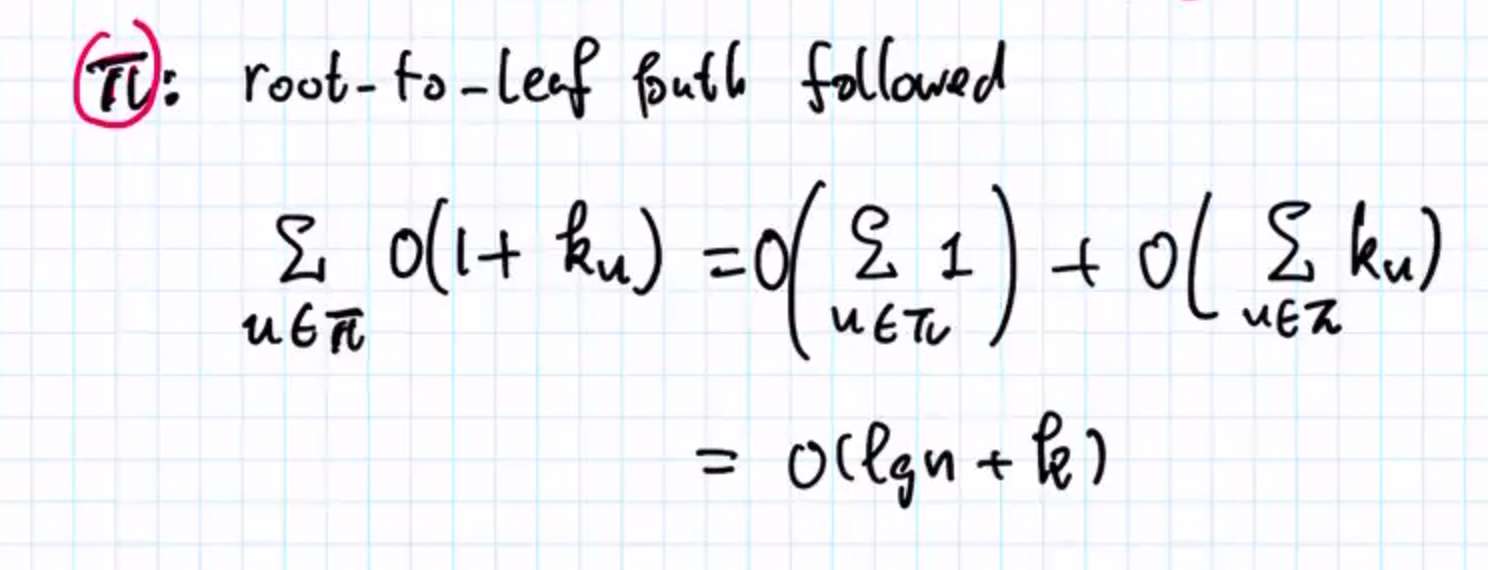 π: root-to-leaf path followed
∑_{u∈π} O(1+ k_u) = O(∑_{u∈π} 1) + O(∑_{u∈π} k_u)
= O(lgn + k)